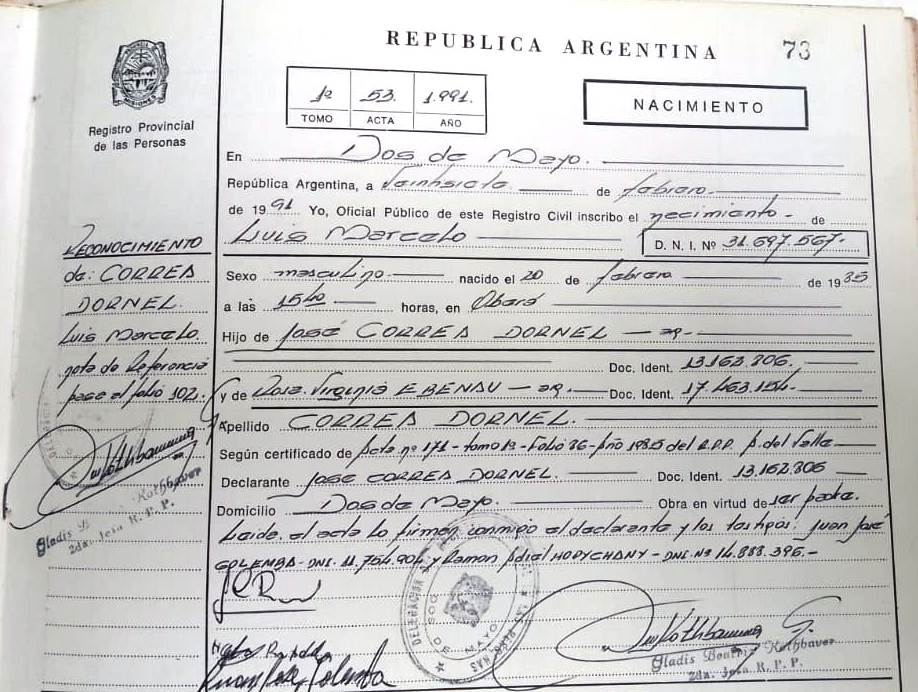 REPUBLICA ARGENTINA
73
1º 53. 1.991.
TOMO ACTA AÑO
NACIMIENTO
Registro Provincial
de las Personas
En Dos de Mayo.
República Argentina, a Veintisiete de febrero.
de 1991 Yo, Oficial Público de este Registro Civil inscribo el necimiento de
Luis Marcelo D. N. I. Nº 31.697.567.
Sexo masculino nacido el 20 de febrero de 1985
a las 15 horas, en Oberá
Hijo de José CORREA DORNEL
Doc. Ident. 13.162.806.
y de Rosa Virginia EBENAU Doc. Ident. 17.463.154.
Apellido CORREA DORNEL.
Según certificado de Acta nº 171 - tomo 1º - Folio 36 - Año 1985 del R.P.P. A. del Valle
Declarante José CORREA DORNEL. Doc. Ident. 13.162.806
Domicilio Dos de Mayo. Obra en virtud de ser padre.
Leída, el acta la firman conmigo el declarante y los testigos: Juan José
GOLEMBA - DNI. 11.754.904 y Ramon HOPYCHANY - DNI. Nº 14.888.396.-
RECONOCIMIENTO
de: CORREA
DORNEL.
Luis Marcelo.
nota de Referencia
pase al folio 102.
Gladis B Rothbauer
2da. Jefa R. P. P.
DELEGACION
DOS DE MAYO
Gladis Beatriz Rothbauer
2da. Jefa R. P. P.